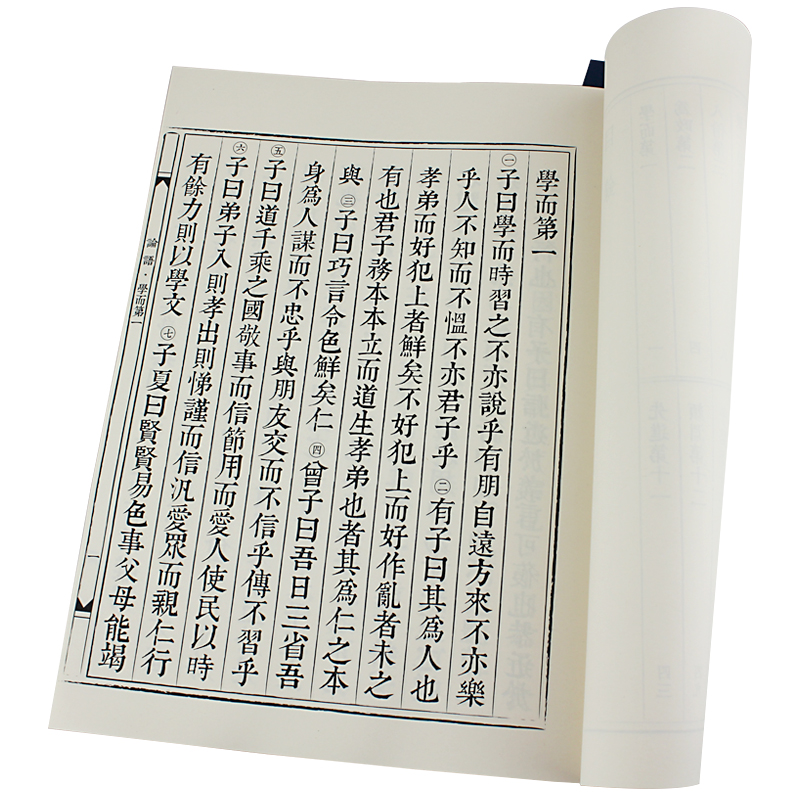 學而第一
㊀子曰學而時習之不亦說乎有朋自遠方來不亦樂
乎人不知而不慍不亦君子乎㊁有子曰其爲人也
孝弟而好犯上者鮮矣不好犯上而好作亂者未之
有也君子務本本立而道生孝弟也者其爲仁之本
與㊂子曰巧言令色鮮矣仁㊃曾子曰吾日三省吾
身爲人謀而不忠乎與朋友交而不信乎傳不習乎
㊄子曰道千乘之國敬事而信節用而愛人使民以時
㊅子曰弟子入則孝出則悌謹而信汎愛眾而親仁行
有餘力則以學文㊆子夏曰賢賢易色事父母能竭
論語·學而第一
一